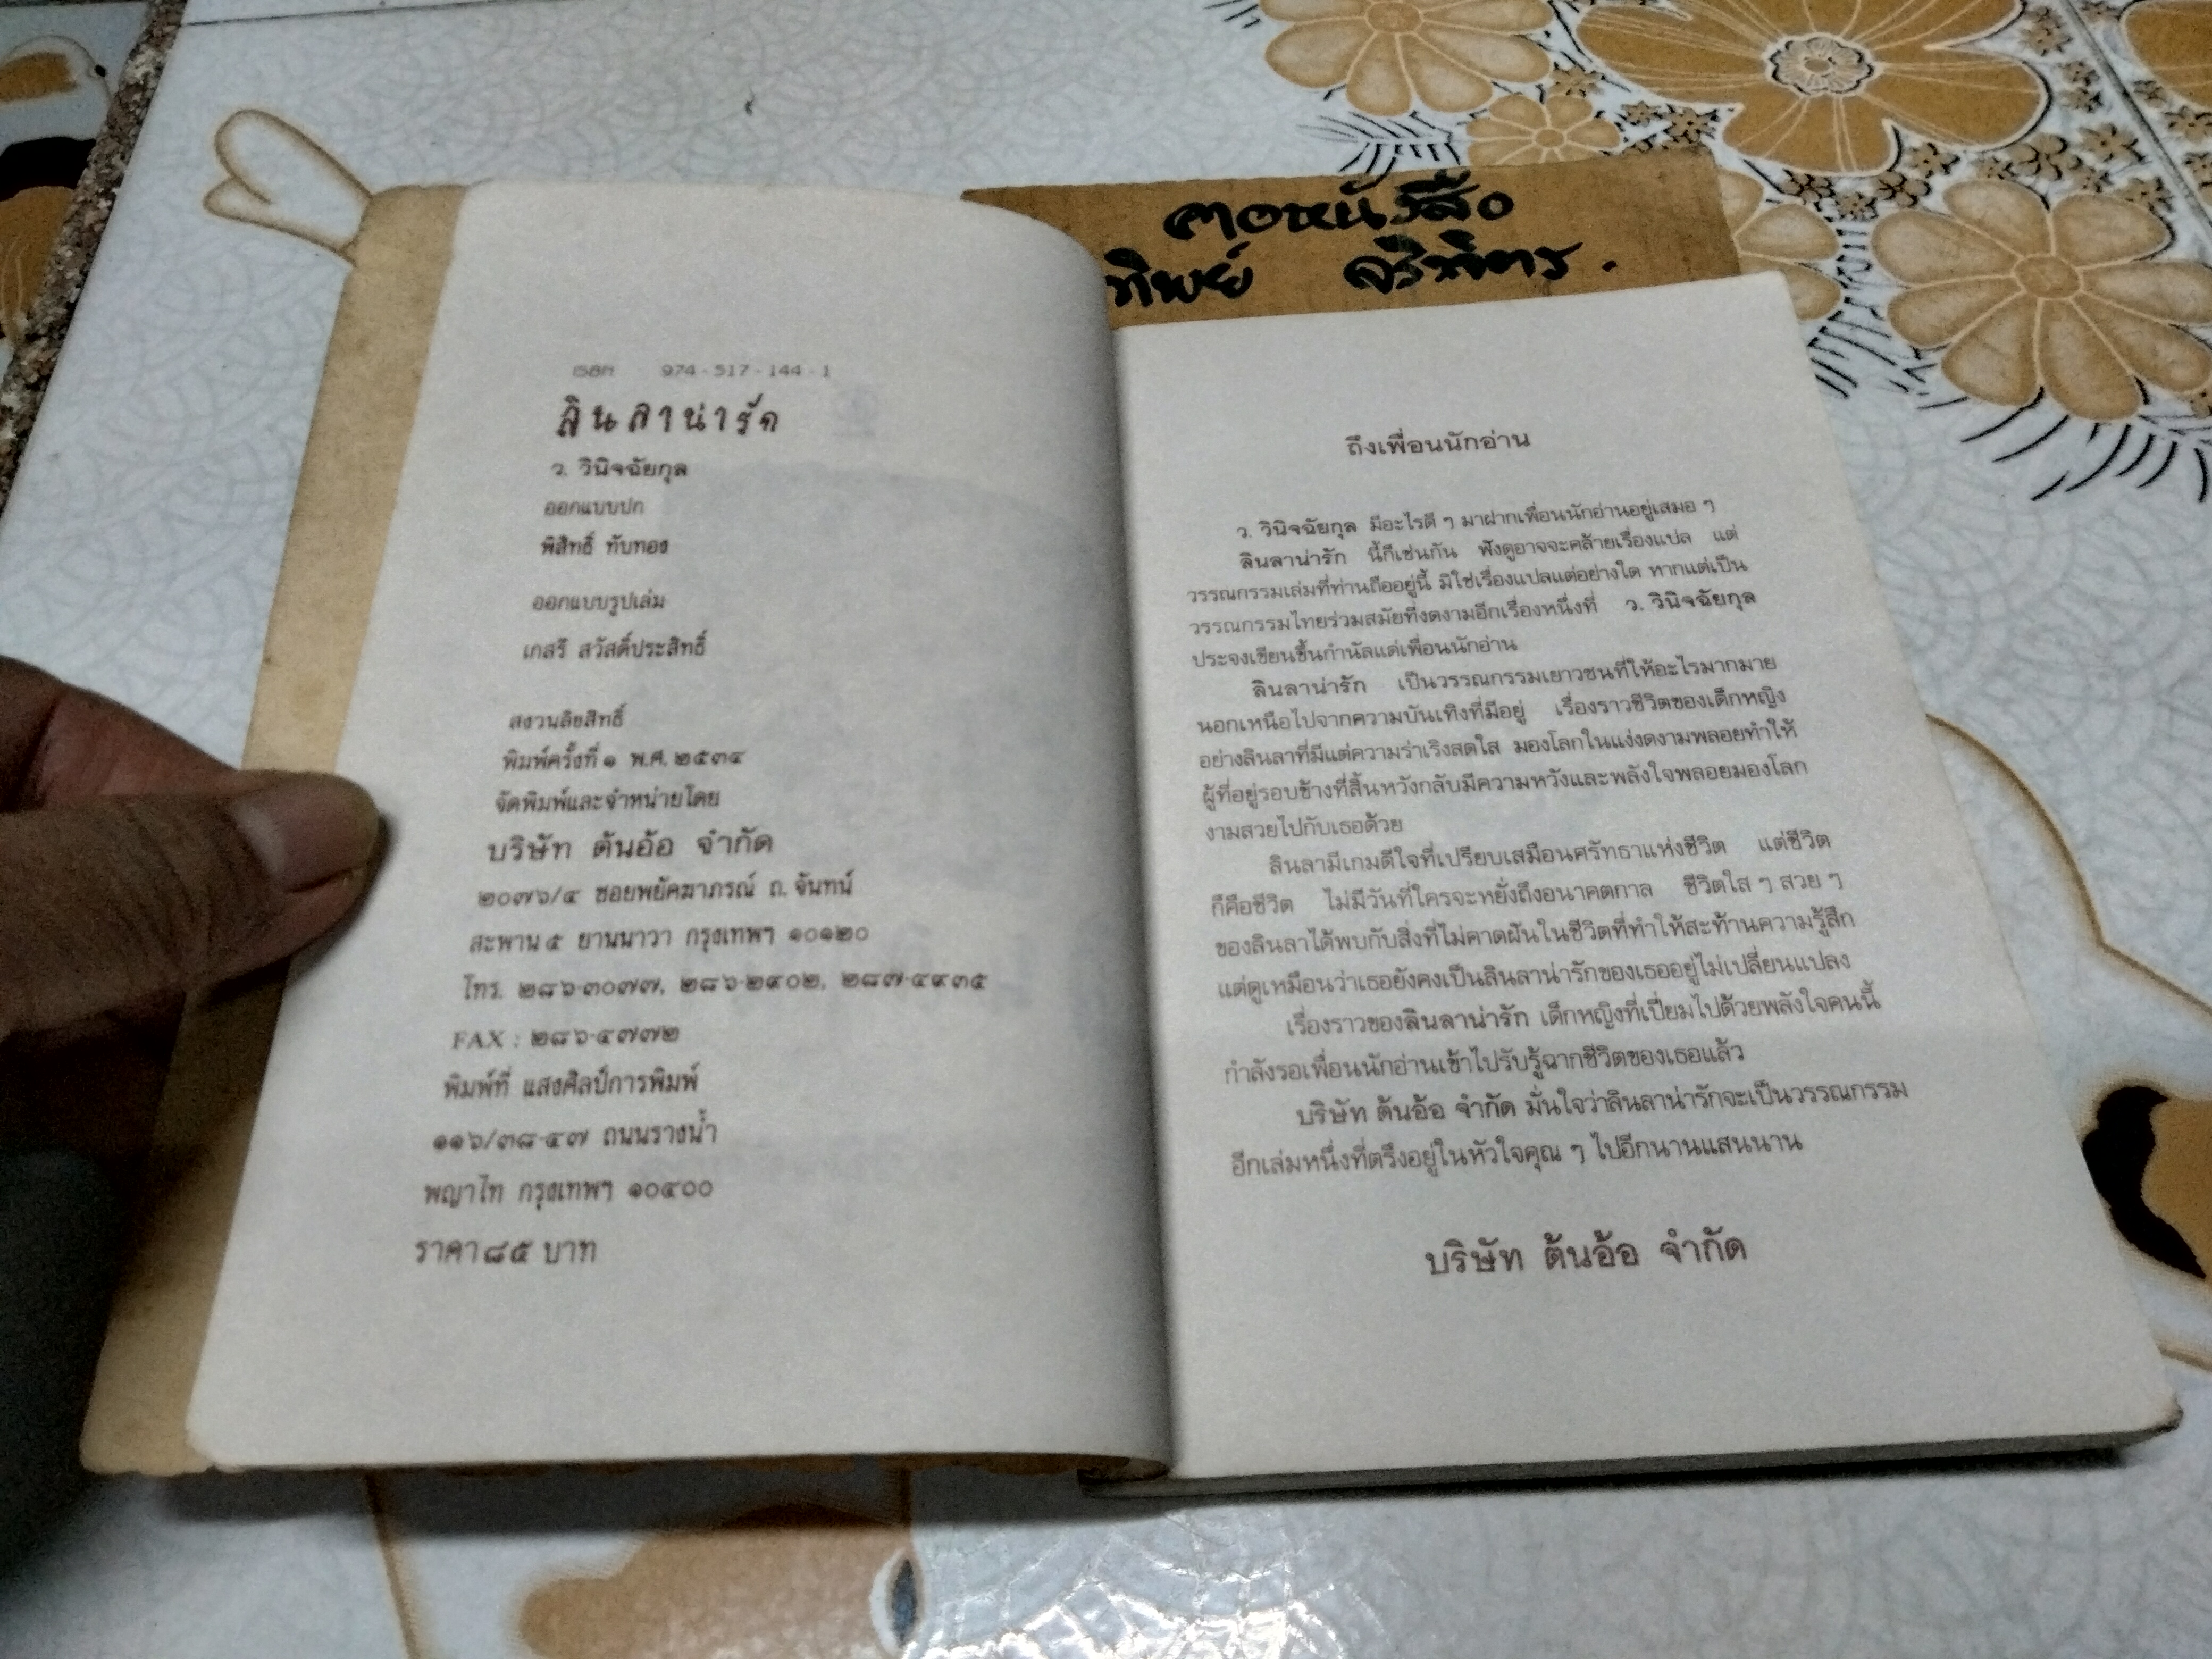 คอหนังสือ
ทิพย์ จริพิตร.
ISBN 974-517-144-1
ลินลาน่ารัก
ว. วินิจฉัยกุล
ออกแบบปก
พิสิทธิ์ ทับทอง
ออกแบบรูปเล่ม
เกสรี สวัสดิ์ประสิทธิ์
สงวนลิขสิทธิ์
พิมพ์ครั้งที่ ๑ พ.ศ. ๒๕๓๔
จัดพิมพ์และจำหน่ายโดย
บริษัท ต้นอ้อ จำกัด
๒๐๗๖/๔ ซอยพยัคฆาภรณ์ ถ. จันทน์
สะพาน ๕ ยานนาวา กรุงเทพฯ ๑๐๑๒๐
โทร. ๒๘๖-๓๐๗๗, ๒๘๖-๒๙๐๒, ๒๘๗-๔๙๓๕
FAX : ๒๘๖-๔๗๗๒
พิมพ์ที่ แสงศิลป์การพิมพ์
๑๑๖/๓๘-๔๗ ถนนรางน้ำ
พญาไท กรุงเทพฯ ๑๐๔๐๐
ราคา ๘๕ บาท
ถึงเพื่อนนักอ่าน
ว. วินิจฉัยกุล มีอะไรดี ๆ มาฝากเพื่อนนักอ่านอยู่เสมอ ๆ
ลินลาน่ารัก นี้ก็เช่นกัน ฟังดูอาจจะคล้ายเรื่องแปล แต่
วรรณกรรมเล่มที่ท่านถืออยู่นี้ มิใช่เรื่องแปลแต่อย่างใด หากแต่เป็น
วรรณกรรมไทยร่วมสมัยที่งดงามอีกเรื่องหนึ่งที่ ว. วินิจฉัยกุล
ประจงเขียนขึ้นกำนัลแด่เพื่อนนักอ่าน
ลินลาน่ารัก เป็นวรรณกรรมเยาวชนที่ให้อะไรมากมาย
นอกเหนือไปจากความบันเทิงที่มีอยู่ เรื่องราวชีวิตของเด็กหญิง
อย่างลินลาที่มีแต่ความร่าเริงสดใส มองโลกในแง่งดงามพลอยทำให้
ผู้ที่อยู่รอบข้างที่สิ้นหวังกลับมีความหวังและพลังใจพลอยมองโลก
งามสวยไปกับเธอด้วย
ลินลามีเกมดีใจที่เปรียบเสมือนศรัทธาแห่งชีวิต แต่ชีวิต
ก็คือชีวิต ไม่มีวันที่ใครจะหยั่งถึงอนาคตกาล ชีวิตใส ๆ สวย ๆ
ของลินลาได้พบกับสิ่งที่ไม่คาดฝันในชีวิตที่ทำให้สะท้านความรู้สึก
แต่ดูเหมือนว่าเธอยังคงเป็นลินลาน่ารักของเธออยู่ไม่เปลี่ยนแปลง
เรื่องราวของลินลาน่ารัก เด็กหญิงที่เปี่ยมไปด้วยพลังใจคนนี้
กำลังรอเพื่อนนักอ่านเข้าไปรับรู้ฉากชีวิตของเธอแล้ว
บริษัท ต้นอ้อ จำกัด มั่นใจว่าลินลาน่ารักจะเป็นวรรณกรรม
อีกเล่มหนึ่งที่ตรึงอยู่ในหัวใจคุณ ๆ ไปอีกนานแสนนาน
บริษัท ต้นอ้อ จำกัด